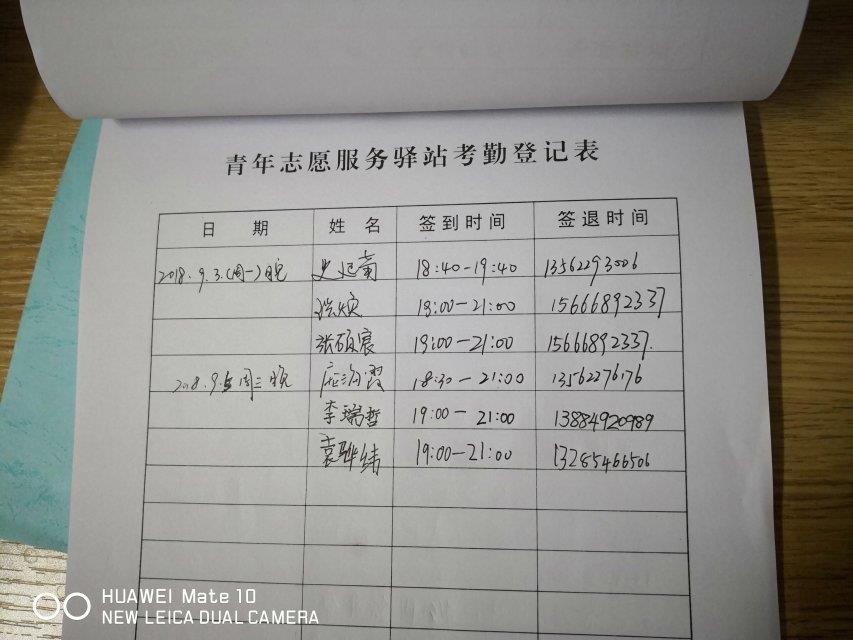 青年志愿服务驿站考勤登记表
日 期 姓 名 签到时间 签退时间
2018.9.3.(周一)晚 18:40-19:40 13562293006
19:00-21:00 15666892337
张硕宸 19:00-21:00 15666892337.
2018.9.5周三晚 18:30-21:00 13562276176
李瑞哲 19:00-21:00 13884920989
袁骅纬 19:00-21:00 13285466506
HUAWEI Mate 10
NEW LEICA DUAL CAMERA